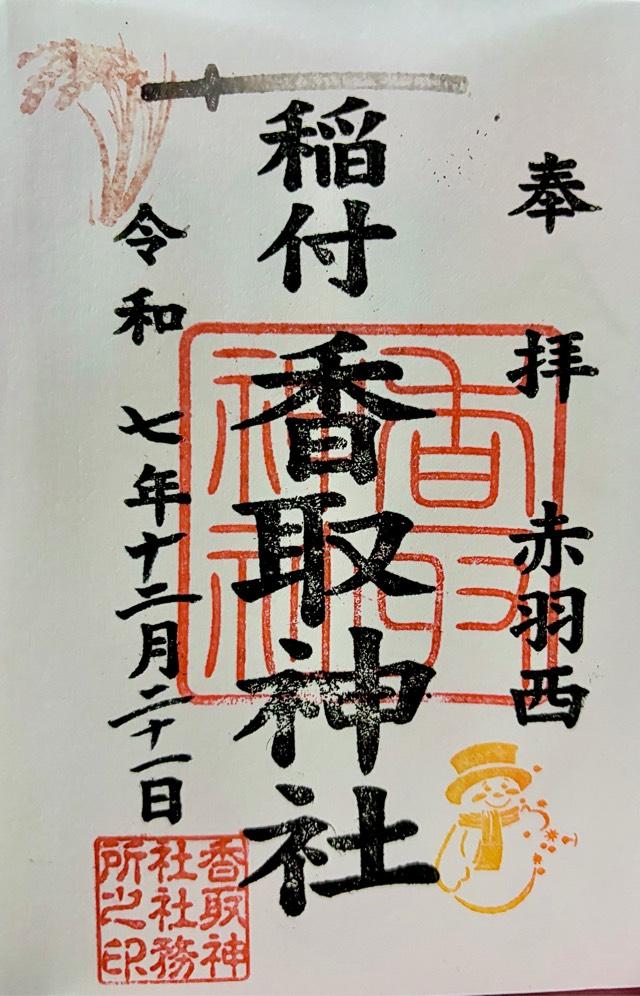 奉拝 赤羽西
稲付
香取神社
令和七年十二月二十一日
香取
神社
香取神
社社務
所之印